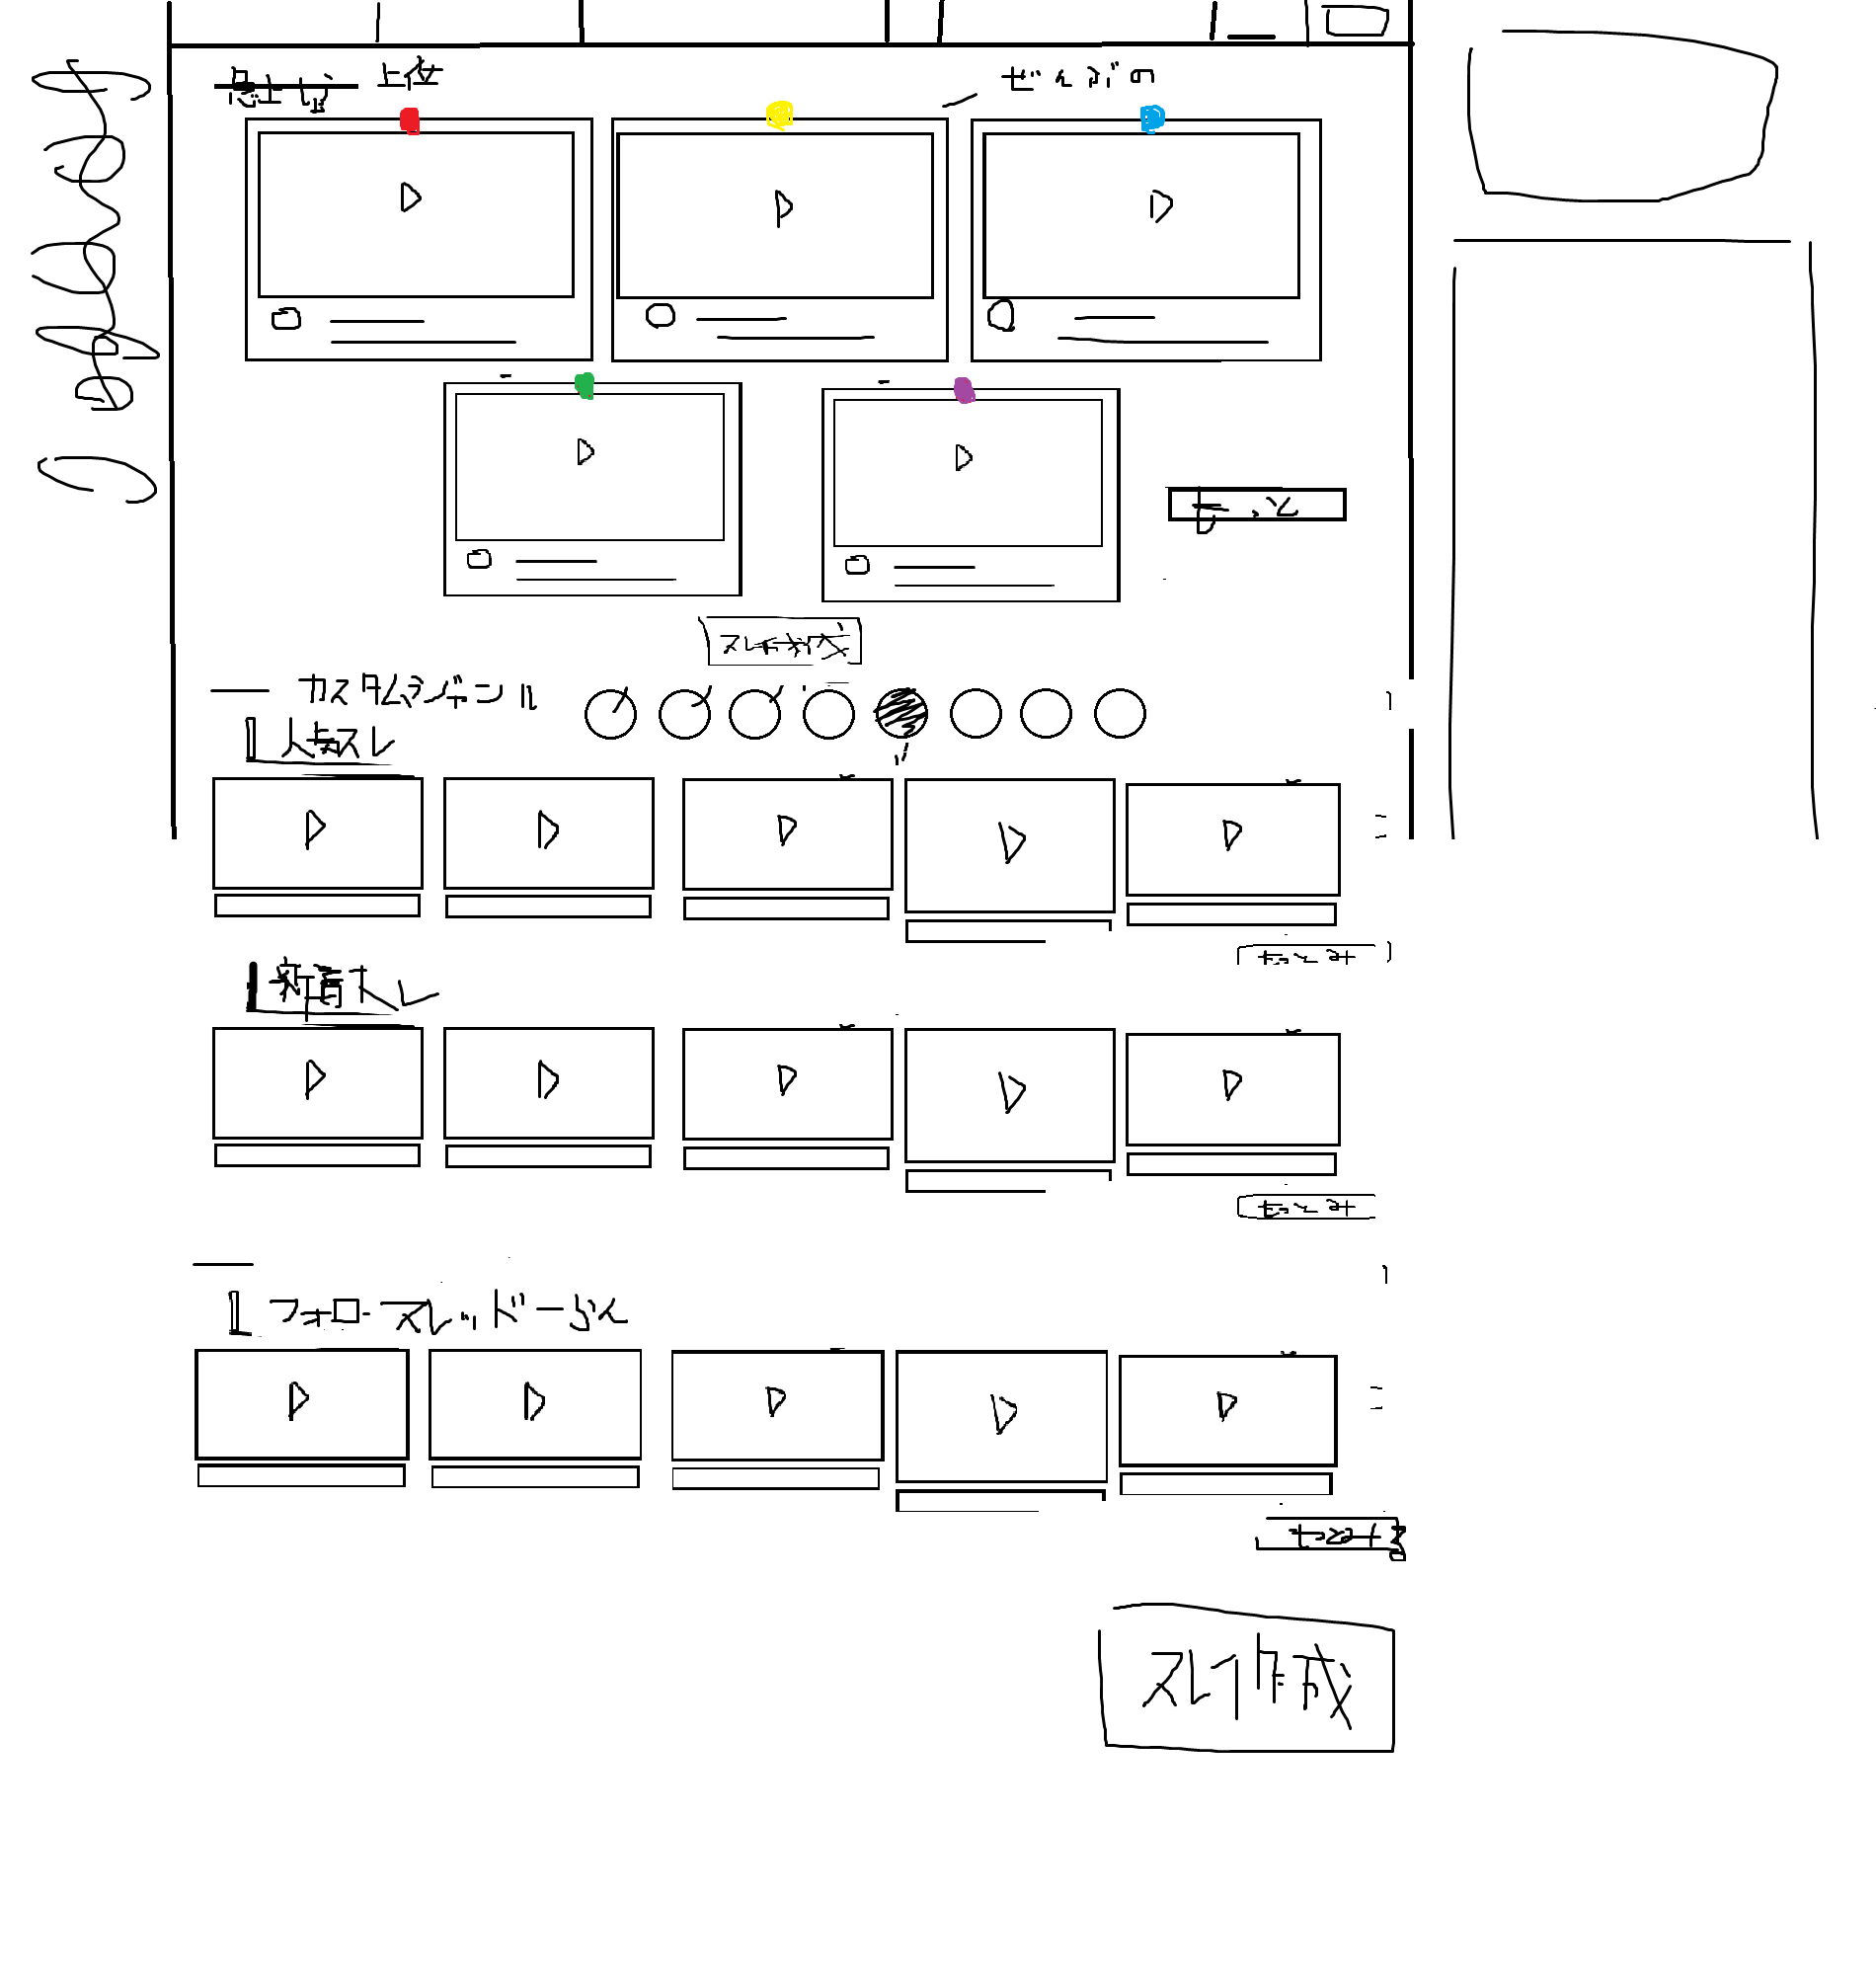 上位
ぜんぶの
もっと
スレ作成
カスタムジャンル
人気スレ
もっとみ
新着スレ
もっとみ
フォロースレッドーらん
もっとみる
スレ作成